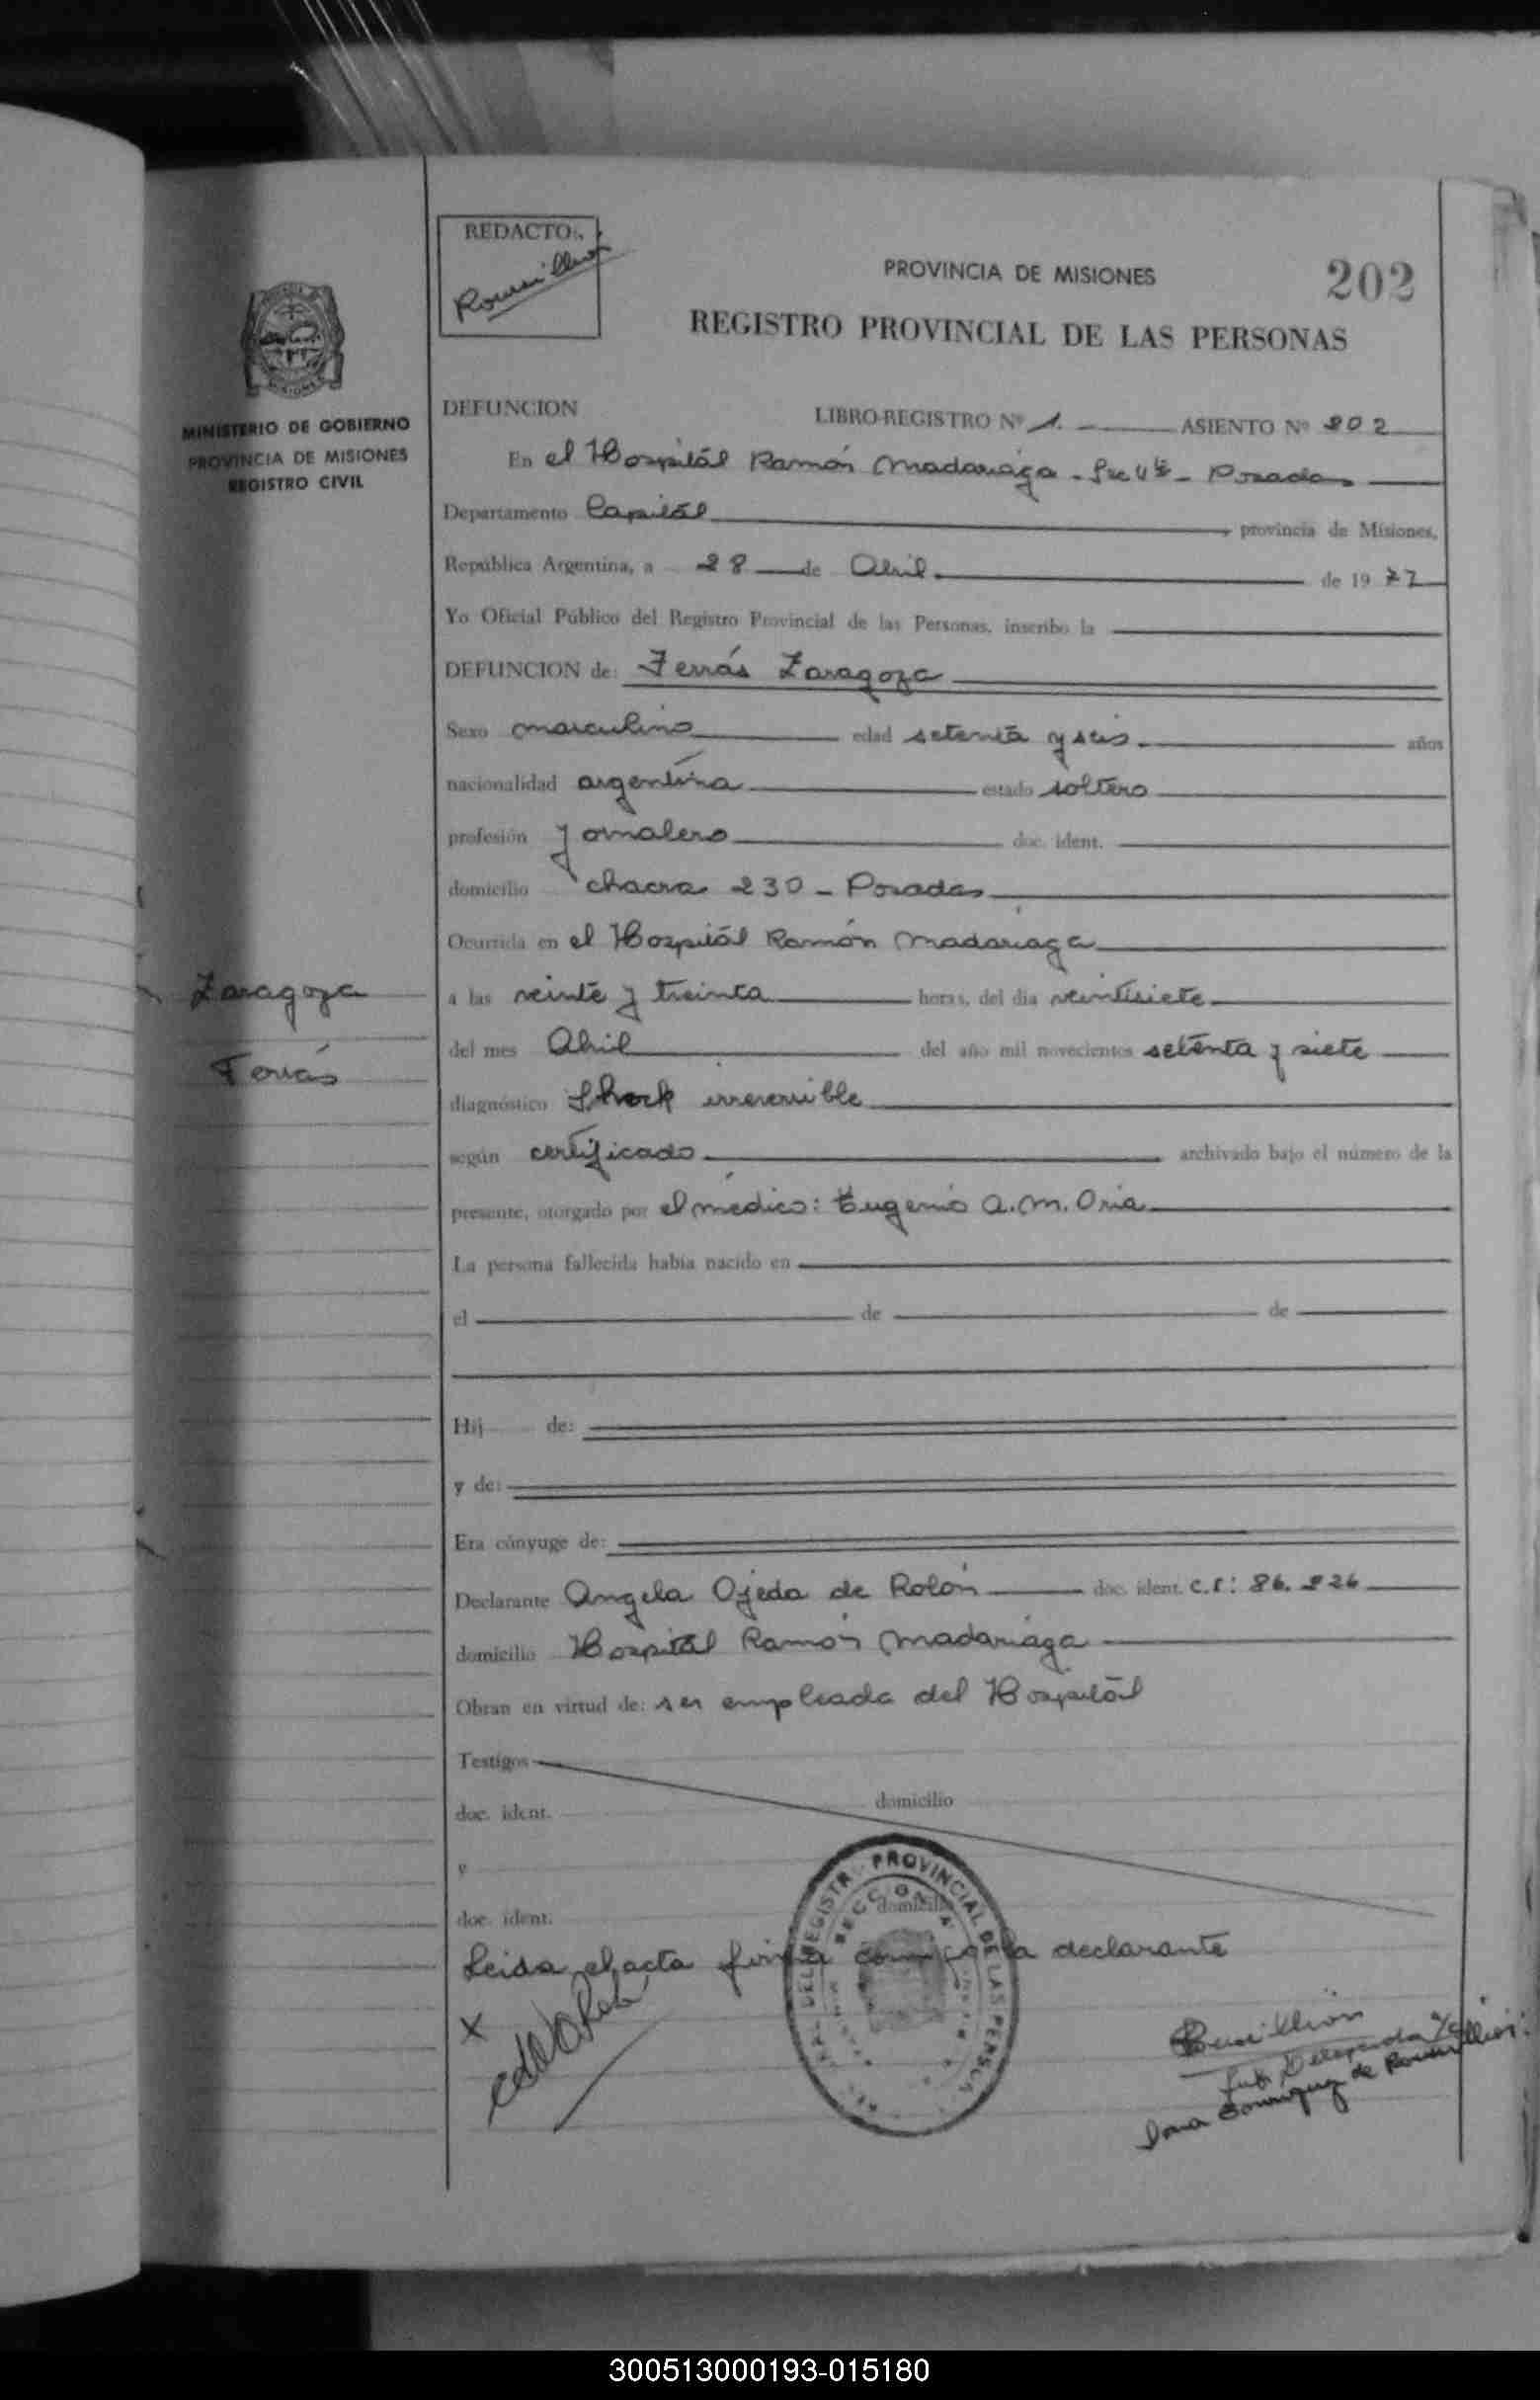 REDACTO:
PROVINCIA DE MISIONES
202
REGISTRO PROVINCIAL DE LAS PERSONAS
MINISTERIO DE GOBIERNO
PROVINCIA DE MISIONES
REGISTRO CIVIL
DEFUNCION LIBRO-REGISTRO Nº 1. ASIENTO Nº 202
En el Hospitál Ramón Madariaga - Posadas
Departamento Capitál provincia de Misiones,
República Argentina, a 28 de Abril de 19 77
Yo Oficial Público del Registro Provincial de las Personas, inscribo la
DEFUNCION de: Ferrás Zaragoza
Sexo masculino edad setenta y seis años
nacionalidad argentina estado soltero
profesión jornalero doc. ident.
domicilio chacra 230 - Posadas
Ocurrida en el Hospitál Ramón Madariaga
Zaragoza
a las veinte y treinta horas, del día veintisiete
del mes Abril del año mil novecientos setenta y siete
Ferrás
diagnóstico Shock irreversible
según certificado archivado bajo el número de la
presente, otorgado por el médico: Eugenio A. M. Oria
La persona fallecida había nacido en
el de de
Hij de:
y de:
Era cónyuge de:
Declarante Angela Ojeda de Rolón doc. ident. C.I: 86.226
domicilio Hospital Ramón Madariaga
Obran en virtud de: ser empleada del Hospitál
Testigos
doc. ident. domicilio
y
doc. ident. domicilio
Leida el acta firma conmigo la declarante
X
REGISTRO PROVINCIAL DE LAS PERSONAS
300513000193-015180